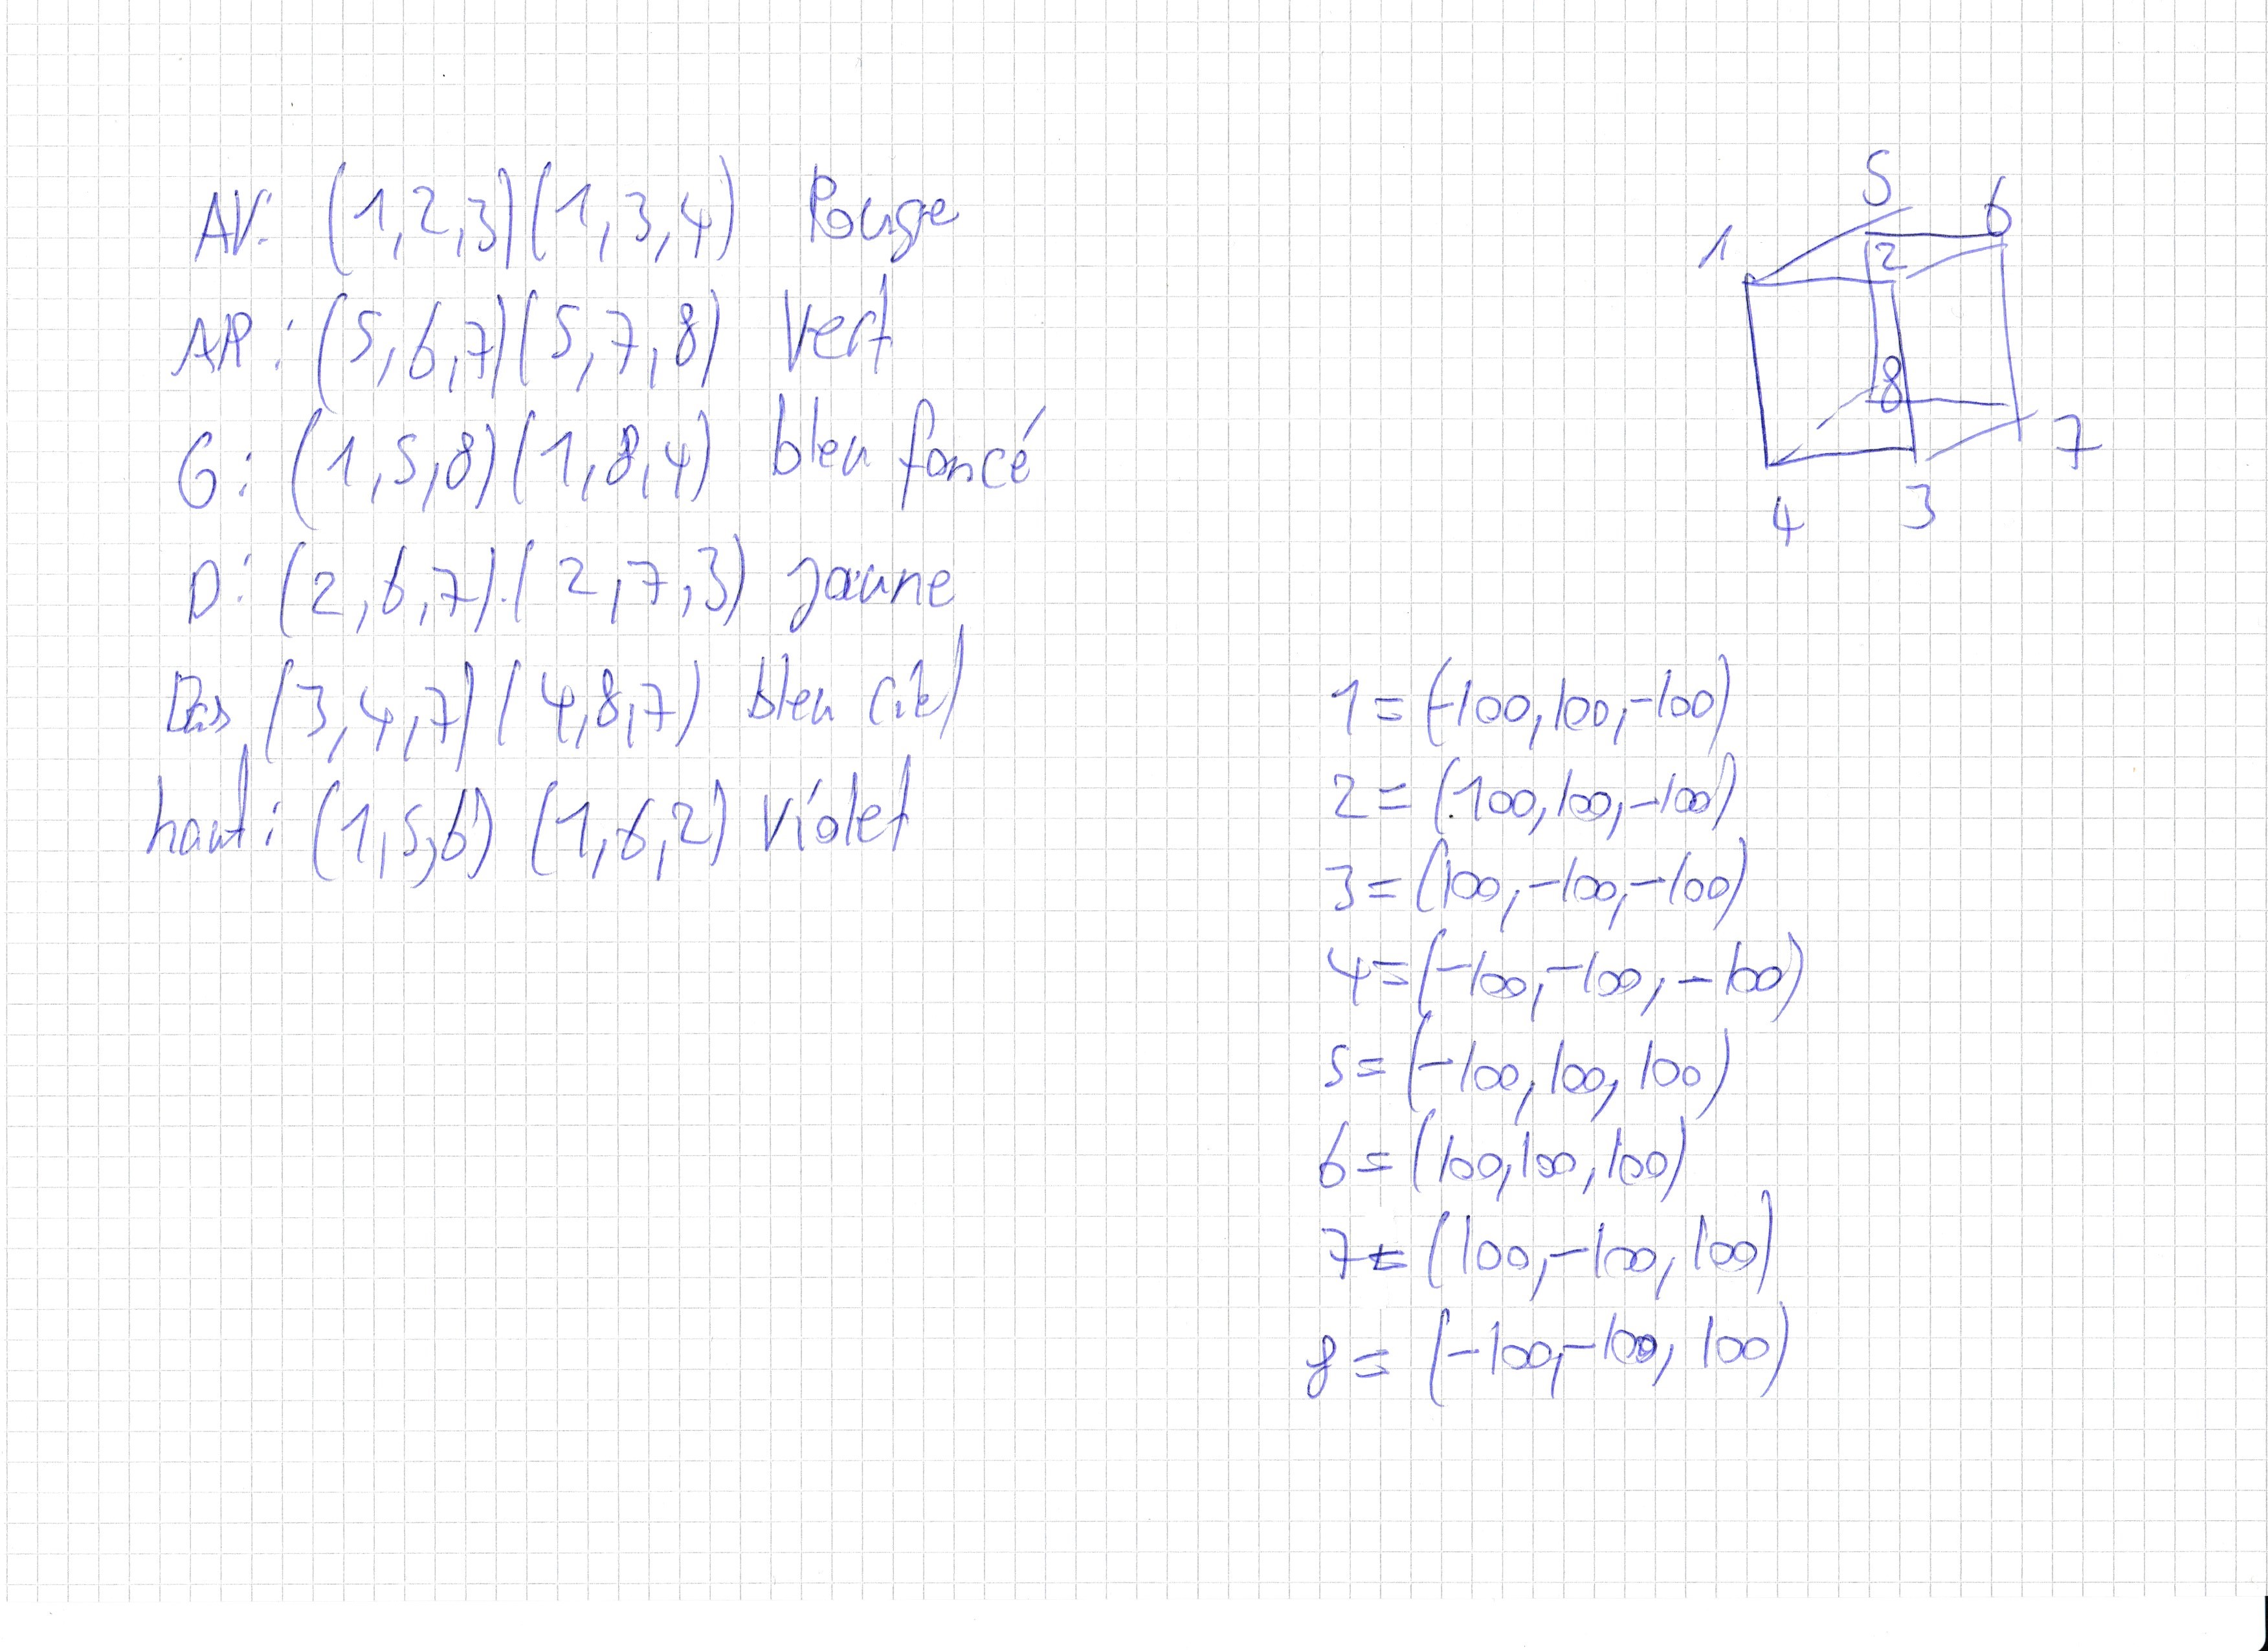 AV: (1,2,3)(1,3,4) Rouge
AR: (5,6,7)(5,7,8) Vert
G: (1,5,8)(1,8,4) bleu foncé
D: (2,6,7).(2,7,3) jaune
Bas (3,4,7)(4,8,7) bleu ciel
haut: (1,5,6) (1,6,2) Violet
5
6
1
2
8
7
4
3
1 = (-100, 100, -100)
2 = (100, 100, -100)
3 = (100, -100, -100)
4 = (-100, -100, -100)
5 = (-100, 100, 100)
6 = (100, 100, 100)
7 = (100, -100, 100)
8 = (-100, -100, 100)